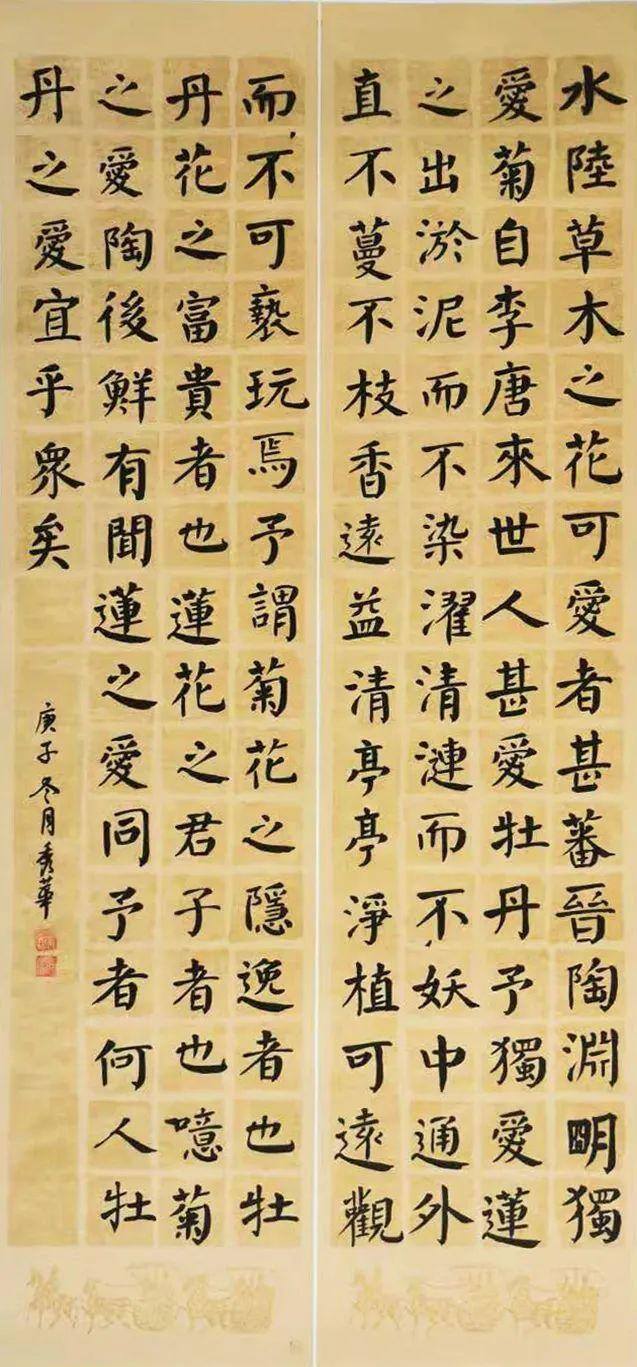 水陸草木之花可愛者甚蕃晉陶淵明獨
愛菊自李唐來世人甚愛牡丹予獨愛蓮
之出淤泥而不染濯清漣而不妖中通外
直不蔓不枝香遠益清亭亭淨植可遠觀
而不可褻玩焉予謂菊花之隱逸者也牡
丹花之富貴者也蓮花之君子者也噫菊
之愛陶後鮮有聞蓮之愛同予者何人牡
丹之愛宜乎衆矣
庚子冬月秀華